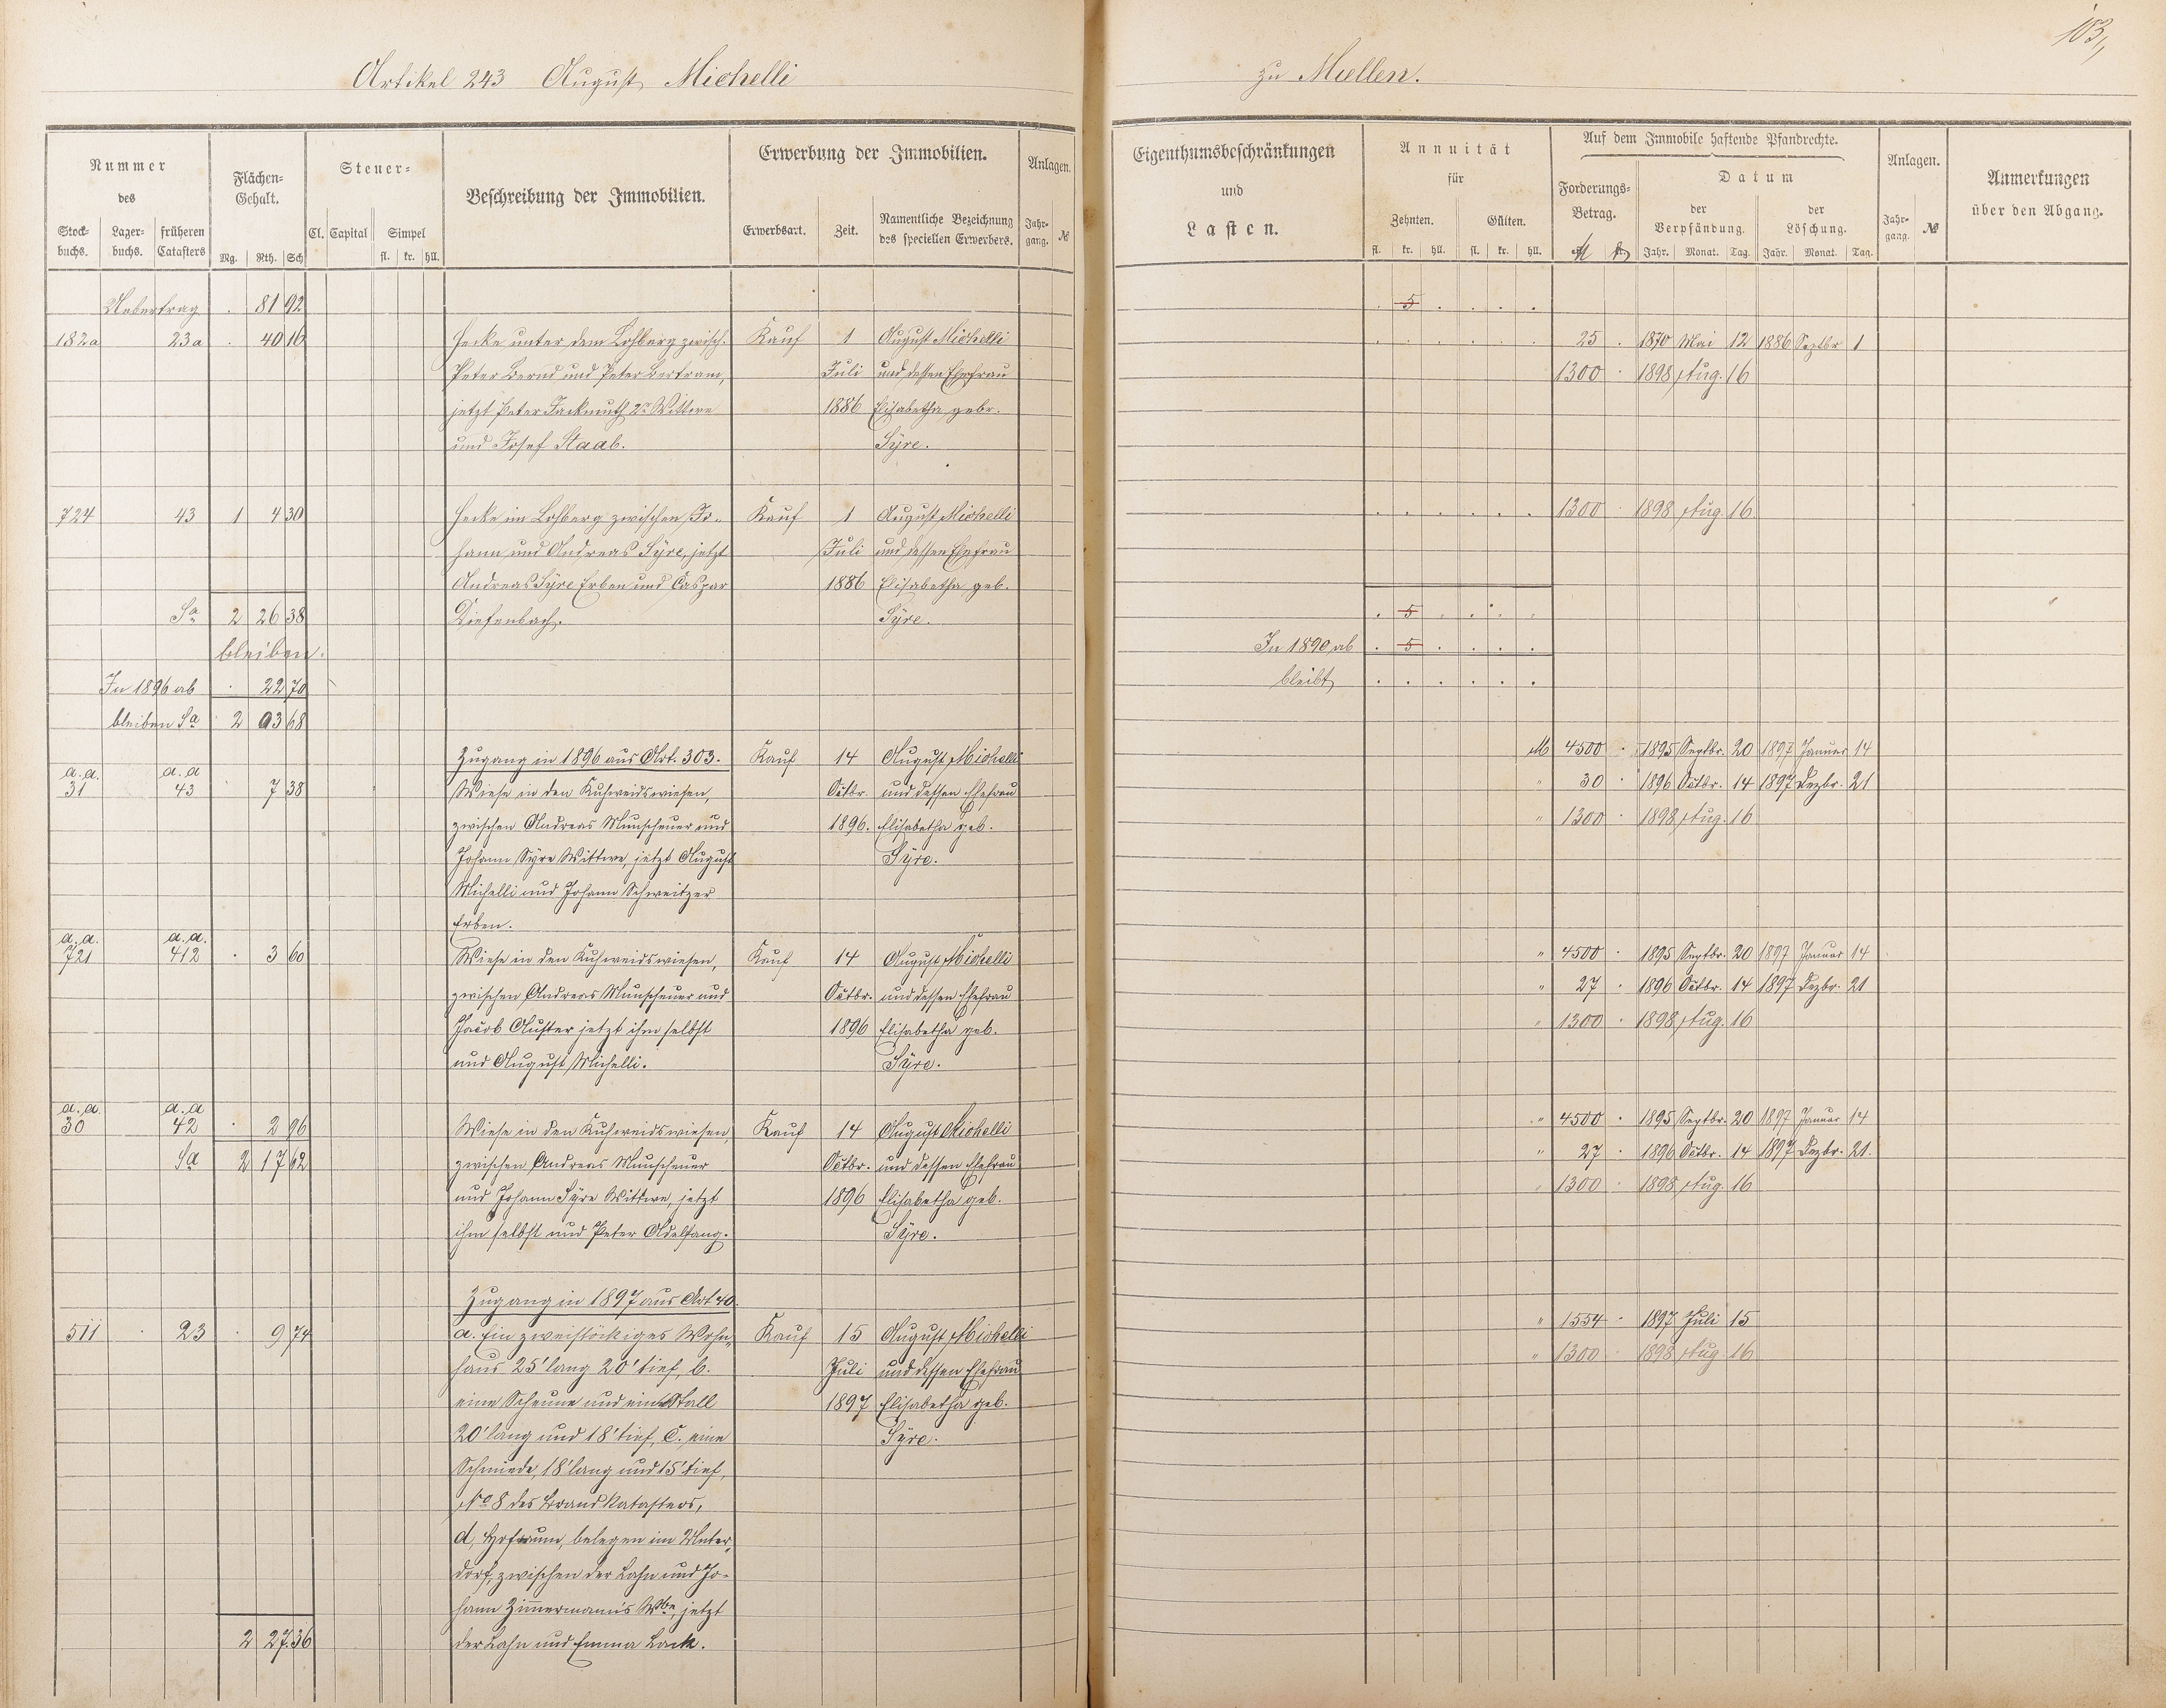 103,
Artikel 243 August Michelli zu Miellen.
Nummer des
Stock-buchs. Lager-buchs. früheren Catasters
Flächen-Gehalt.
Mg. Rth. Sch
Steuer-
Cl. Capital Simpel
fl. kr. hll.
Beschreibung der Immobilien.
Erwerbung der Immobilien.
Erwerbsart. Zeit. Namentliche Bezeichnung des speciellen Erwerbers.
Anlagen.
Jahr-gang. №
Eigenthumsbeschränkungen und Lasten.
Annuität für
Zehnten. Gülten.
fl. kr. hll. fl. kr. hll.
Auf dem Immobile haftende Pfandrechte.
Forderungs-Betrag.
Datum
der Verpfändung. der Löschung.
Jahr. Monat. Tag. Jahr. Monat. Tag.
Anlagen.
Jahr-gang. №
Anmerkungen über den Abgang.
Uebertrag . 81 92 . 5 . . . .
182a 23a . 40 16 Hecke unter dem Lohberg zwisch. Kauf 1 August Michelli . . . . . . 25 . 1870 Mai 12 1886 Septbr 1
Peter Bernd und Peter Bertram, Juli und dessen Ehefrau 1300 . 1898 Aug. 16
jetzt Peter Fackmuth 2r Wittwe 1886 Elisabetha gebr.
und Josef Staab. Syre.
724 43 1 4 30 Hecke im Lohberg zwischen Jo- Kauf 1 August Michelli . . . . . . 1300 . 1898 Aug. 16
hann und Andreas Syre, jetzt Juli und dessen Ehefrau
Andreas Syre Erben und Caspar 1886 Elisabetha geb.
Sa 2 26 38 Diefenbach. Syre. . 5 . . . .
bleiben. In 1890 ab . 5 . . . .
In 1896 ab . 22 70 bleibt . . . . . .
bleiben Sa 2 03 68
Zugang in 1896 aus Art. 303. Kauf 14 August Michelli M 4500 . 1895 Septbr. 20 1897 Januar 14
a.a. 31 a.a 43 7 38 Wiese in den Kuhweidswiesen, Octbr. und dessen Ehefrau " 30 . 1896 Octbr. 14 1897 Dezbr. 21
zwischen Andreas Munscheuer und 1896. Elisabetha geb. " 1300 . 1898 Aug. 16
Johann Syre Wittwe, jetzt August Syre.
Michelli und Johann Schweitzer
Erben.
a.a. 721 a.a. 412 . 3 60 Wiese in den Kuhweidswiesen, Kauf 14 August Michelli " 4500 . 1895 Septbr. 20 1897 Januar 14
zwischen Andreas Munscheuer und Octbr. und dessen Ehefrau " 27 . 1896 Octbr. 14 1897 Dezbr. 21
Jacob Auster jetzt ihm selbst 1896 Elisabetha geb. " 1300 . 1898 Aug. 16
und August Michelli. Syre.
a.a. 30 a.a 42 . 2 96 Wiese in den Kuhweidswiesen, Kauf 14 August Michelli " 4500 . 1895 Septbr. 20 1897 Januar 14
Sa 2 17 62 zwischen Andreas Munscheuer Octbr. und dessen Ehefrau " 27 . 1896 Octbr. 14 1897 Dezbr. 21.
und Johann Syre Wittwe, jetzt 1896 Elisabetha geb. " 1300 . 1898 Aug. 16
ihm selbst und Peter Adelfang. Syre.
Zugang in 1897 aus Art 40.
511 . 23 . 9 74 a. Ein zweistöckiges Wohn- Kauf 15 August Michelli " 1554 . 1897 Juli 15
haus 25' lang 20' tief, b. Juli und dessen Ehefrau " 1300 . 1898 Aug. 16
eine Scheune und ein Stall 1897 Elisabetha geb.
20' lang und 18' tief, C. eine Syre.
Schmiede, 18' lang und 15' tief,
No 8 des Brandkatasters,
d, Hofraum, belegen im Unter-
dorf, zwischen der Lahn und Jo-
hann Zimmermann's Wbe, jetzt
2 27 36 der Lahn und Emma Lack.